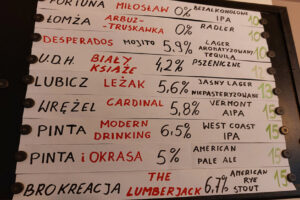 FORTUNA MIŁOSŁAW 0% BEZALKOHOLOWE IPA 15
ŁOMŻA ARBUZ-TRUSKAWKA 0% RADLER 10
DESPERADOS MOJITO 5,9% LAGER AROMATYZOWANY TEQUILĄ 10
U.D.H. BIAŁY KSIĄŻĘ 4,2% PSZENICZNE
LUBICZ LEŻAK 5,6% JASNY LAGER NIEPASTERYZOWANE 13
WRĘŻEL CARDINAL 5,8% VERMONT AIPA 15
PINTA MODERN DRINKING 6,5% WEST COAST IPA 15
PINTA i OKRASA 5% AMERICAN PALE ALE 15
BROKREACJA THE LUMBERJACK 6,7% AMERICAN RYE STOUT 15